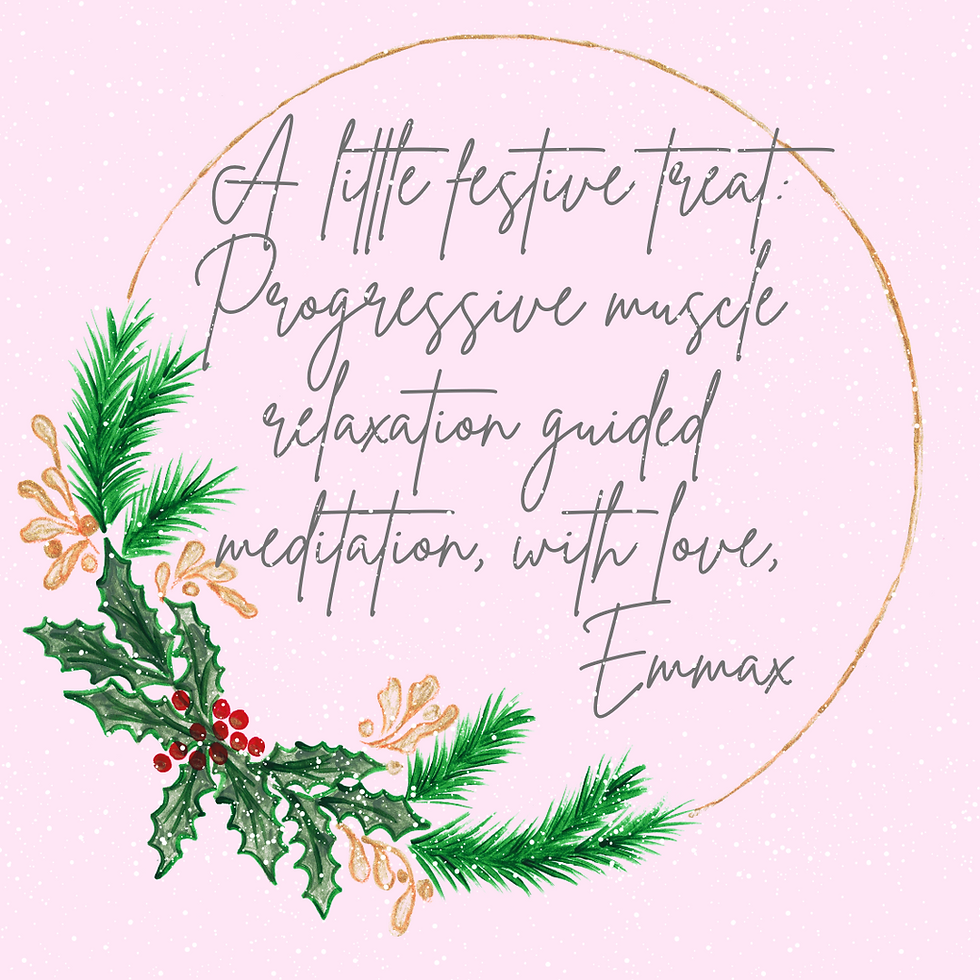 A little festive treat:
Progressive muscle
relaxation guided
meditation, with love,
Emmax